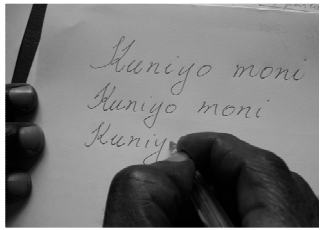 Kuniyo moni
Kuniyo moni
Kuniy